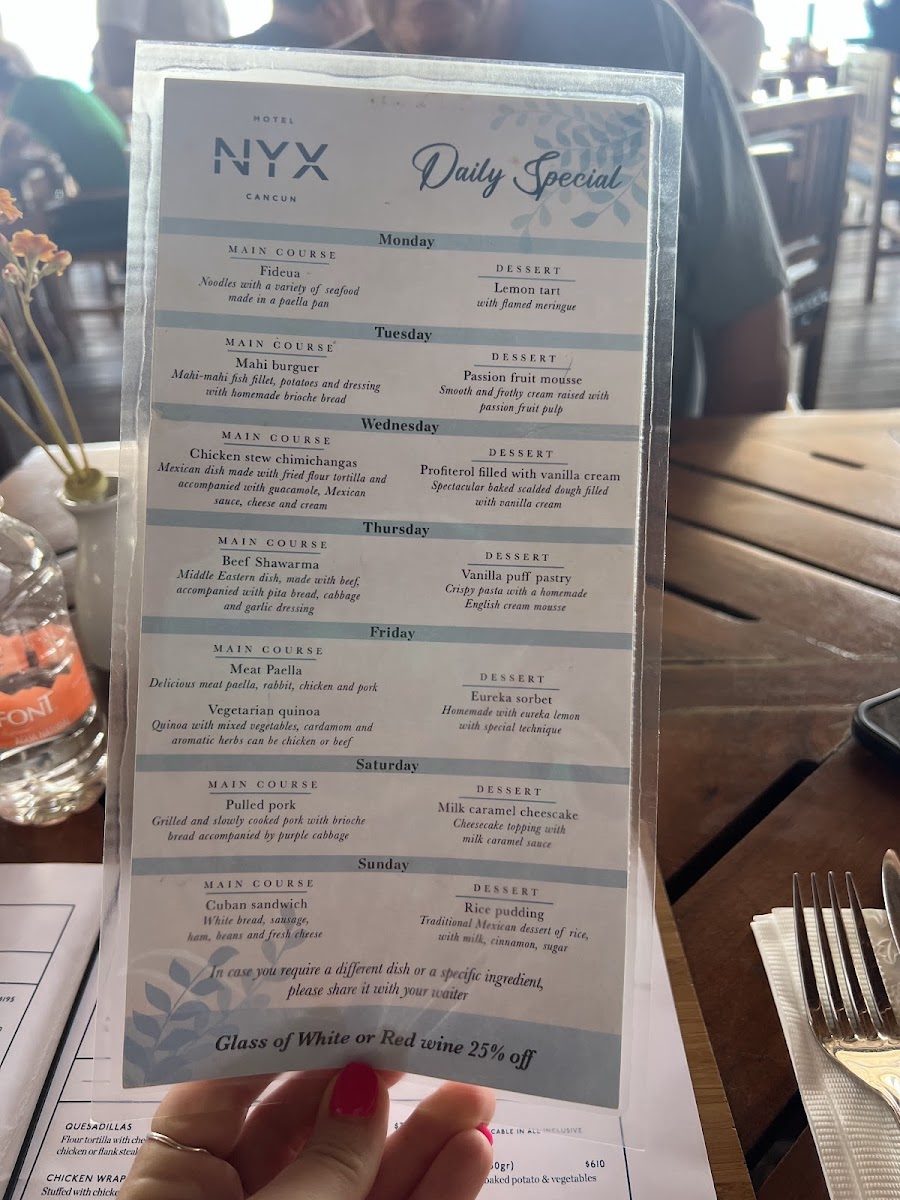 HOTEL
NYX
CANCUN
Daily Special
Monday
MAIN COURSE
Fideua
Noodles with a variety of seafood
made in a paella pan
DESSERT
Lemon tart
with flamed meringue
Tuesday
MAIN COURSE
Mahi burguer
Mahi-mahi fish fillet, potatoes and dressing
with homemade brioche bread
DESSERT
Passion fruit mousse
Smooth and frothy cream raised with
passion fruit pulp
Wednesday
MAIN COURSE
Chicken stew chimichangas
Mexican dish made with fried flour tortilla and
accompanied with guacamole, Mexican
sauce, cheese and cream
DESSERT
Profiterol filled with vanilla cream
Spectacular baked scalded dough filled
with vanilla cream
Thursday
MAIN COURSE
Beef Shawarma
Middle Eastern dish, made with beef,
accompanied with pita bread, cabbage
and garlic dressing
DESSERT
Vanilla puff pastry
Crispy pasta with a homemade
English cream mousse
Friday
MAIN COURSE
Meat Paella
Delicious meat paella, rabbit, chicken and pork
Vegetarian quinoa
Quinoa with mixed vegetables, cardamom and
aromatic herbs can be chicken or beef
DESSERT
Eureka sorbet
Homemade with eureka lemon
with special technique
Saturday
MAIN COURSE
Pulled pork
Grilled and slowly cooked pork with brioche
bread accompanied by purple cabbage
DESSERT
Milk caramel cheescake
Cheesecake topping with
milk caramel sauce
Sunday
MAIN COURSE
Cuban sandwich
White bread, sausage,
ham, beans and fresh cheese
DESSERT
Rice pudding
Traditional Mexican dessert of rice,
with milk, cinnamon, sugar
In case you require a different dish or a specific ingredient,
please share it with your waiter
Glass of White or Red wine 25% off
QUESADILLAS
Flour tortilla with
chicken or flank
CHICKEN WRAP
Stuffed with
IN ALL INCLUSIVE
$610
baked potato & vegetables